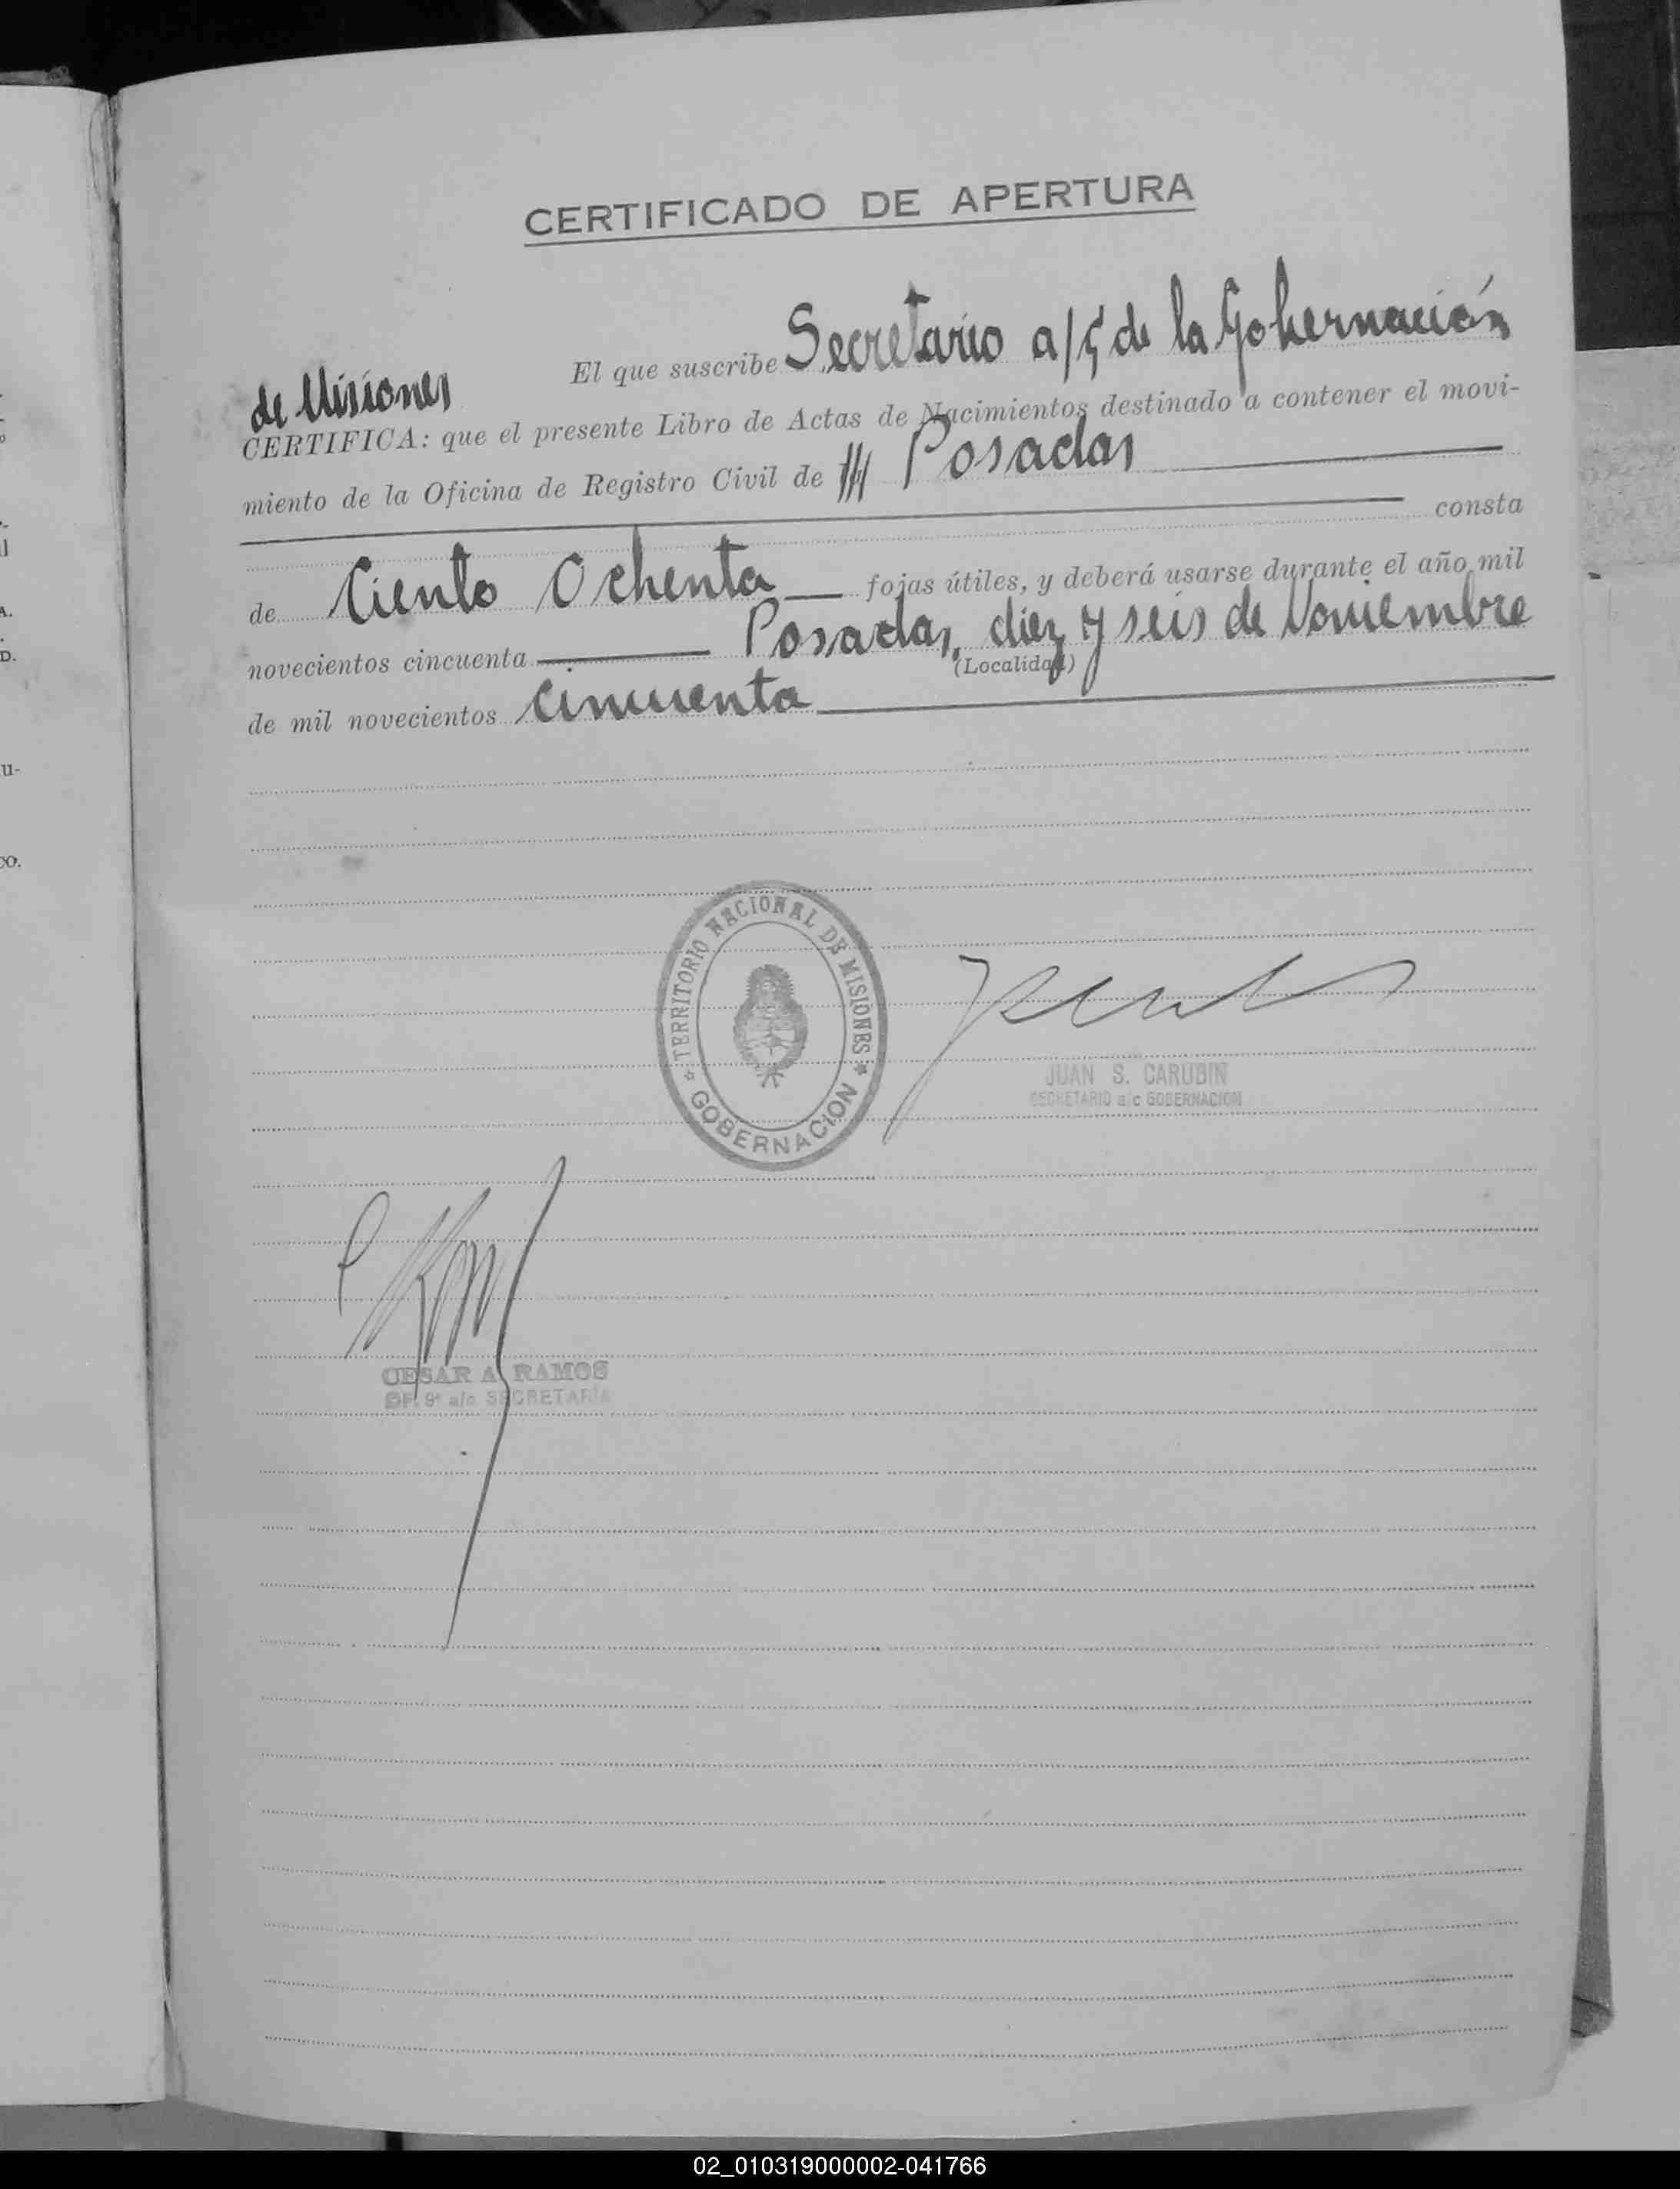 CERTIFICADO DE APERTURA
El que suscribe Secretario a/c de la Gobernación
de Misiones
CERTIFICA: que el presente Libro de Actas de Nacimientos destinado a contener el movi-
miento de la Oficina de Registro Civil de Posadas
consta
de Ciento Ochenta fojas útiles, y deberá usarse durante el año mil
novecientos cincuenta Posadas, diez y seis de Noviembre
(Localidad)
de mil novecientos cincuenta
TERRITORIO NACIONAL DE MISIONES
GOBERNACION
JUAN S. CARUBIN
SECRETARIO a/c GOBERNACION
CESAR A. RAMOS
OF. 9º a/c SECRETARÍA
02_010319000002-041766